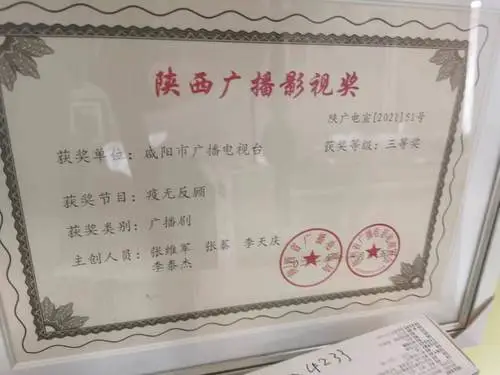 陕西广播影视奖
陕广电宣[2021]51号
获奖单位：咸阳市广播电视台
获奖等级：三等奖
获奖节目：疫无反顾
获奖类别：广播剧
主创人员：张维军 张慕 李天庆
李泰杰
4233